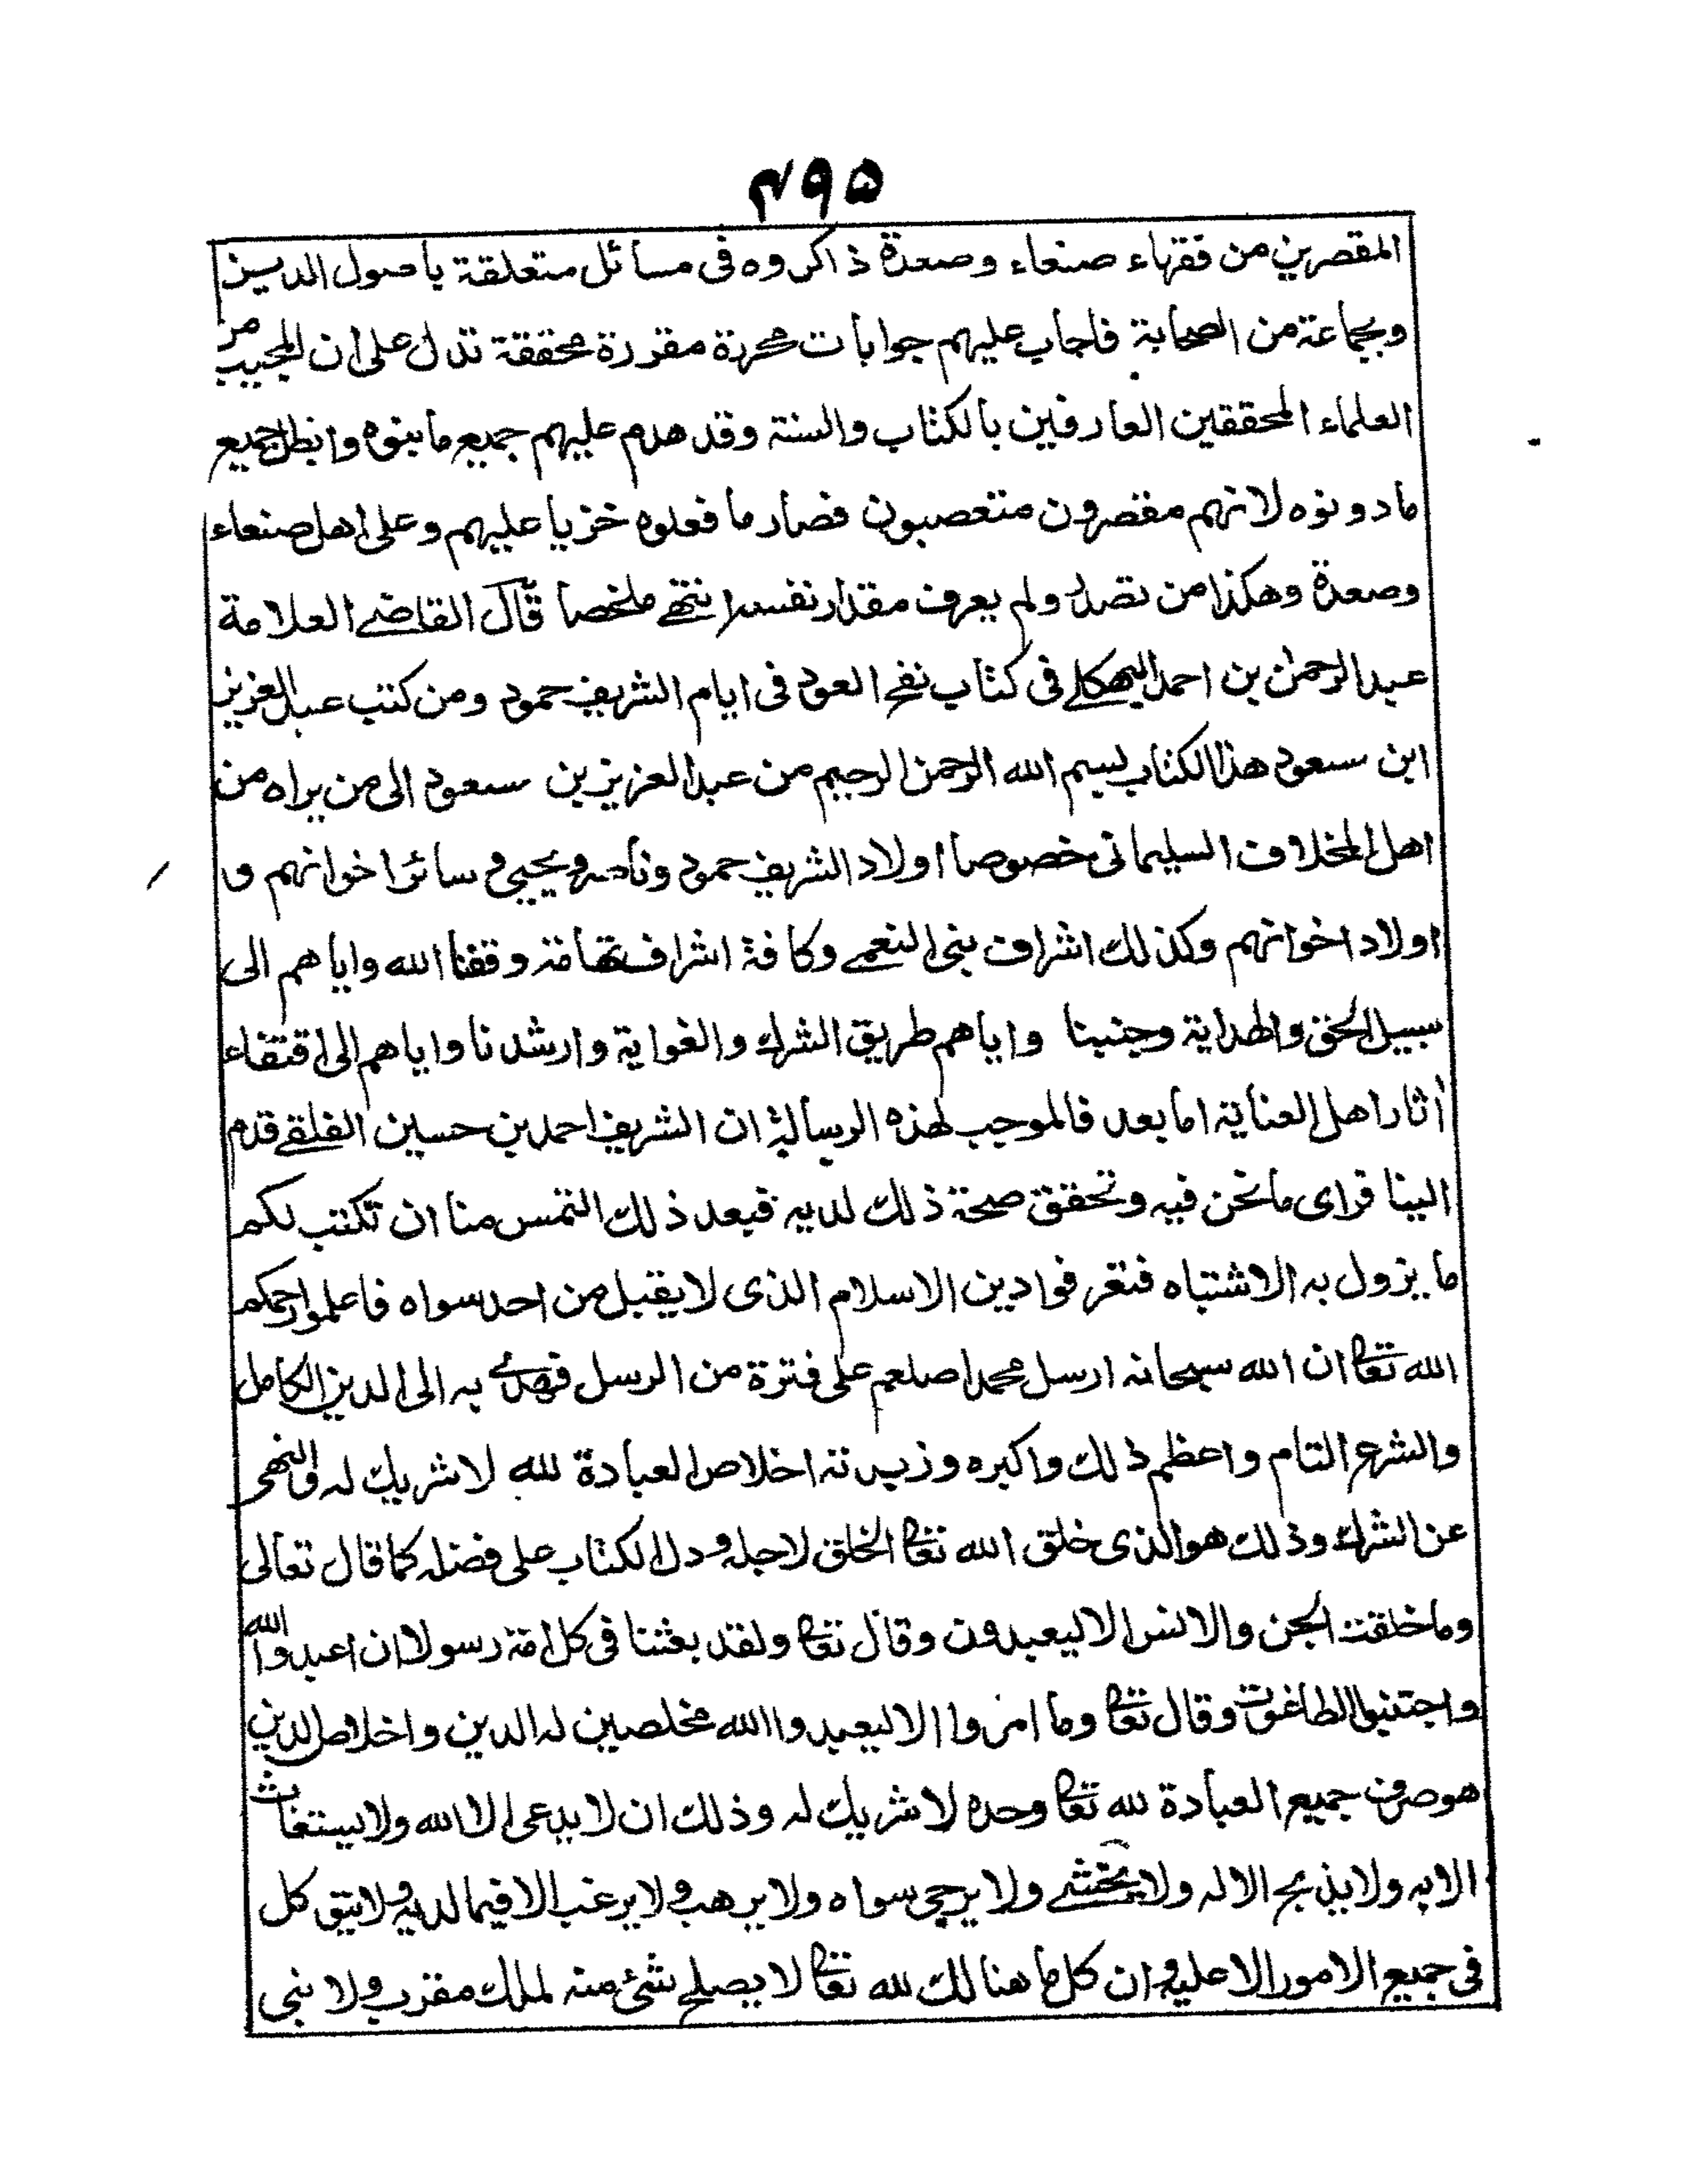 ۴۹۵
المقصرين من فقهاء صنعاء وصعدة ذاكروه فى مسائل متعلقة باصول الدين
وبجماعة من الصحابة فاجاب عليهم جوابات محررة مقررة محققة تدل على ان المجيب من
العلماء المحققين العارفين بالكتاب والسنة وقد هدم عليهم جميع ما بنوه وابطل جميع
ما دونوه لانهم مقصرون متعصبون فصار ما فعلوه خزيا عليهم وعلى اهل صنعاء
وصعدة وهكذا من تصدر ولم يعرف مقدار نفسه انتهى ملخصا قال القاضى العلامة
عبد الرحمن بن احمد البهكلى فى كتاب نفح العود فى ايام الشريف حمود ومن كتب عبد العزيز
ابن سعود هذا الكتاب بسم الله الرحمن الرحيم من عبد العزيز بن سعود الى من يراه من
اهل المخلاف السليمانى خصوصا اولاد الشريف حمود وناصر ويحيى وسائر اخوانهم و
اولاد اخوانهم وكذلك اشراف بنى النعمى وكافة اشراف تهامة وفقنا الله واياهم الى
سبيل الحق والهداية وجنبنا واياهم طريق الشرك والغواية وارشدنا واياهم الى اقتفاء
آثار اهل العناية اما بعد فالموجب لهذه الرسالة ان الشريف احمد بن حسين الفلقى قدم
الينا فراى ما نحن فيه وتحقق صحة ذلك لديه فبعد ذلك التمس منا ان نكتب لكم
ما يزول به الاشتباه فتعرفوا دين الاسلام الذى لا يقبل من احد سواه فاعلموا رحمكم
الله تعا ان الله سبحانه ارسل محمدا صلعم على فترة من الرسل فهدى به الى الدين الكامل
والشرع التام واعظم ذلك واكبره وزبدته اخلاص العبادة لله لا شريك له والنهى
عن الشرك وذلك هو الذى خلق الله تعا الخلق لاجله ودل الكتاب على فضله كما قال تعالى
وما خلقت الجن والانس الا ليعبدون وقال تعا ولقد بعثنا فى كل امة رسولا ان اعبدوا الله
واجتنبوا الطاغوت وقال تعا وما امروا الا ليعبدوا الله مخلصين له الدين واخلاص الدين
هو صرف جميع العبادة لله تعا وحده لا شريك له وذلك ان لا يدعى الا الله ولا يستغاث
الا به ولا يذبح الا له ولا يخشى ولا يرجى سواه ولا يرهب ولا يرغب الا فيما لديه ولا يتوكل
فى جميع الامور الا عليه وان كل ما هنالك لله تعا لا يصلح شئ منه لملك مقرب ولا نبى